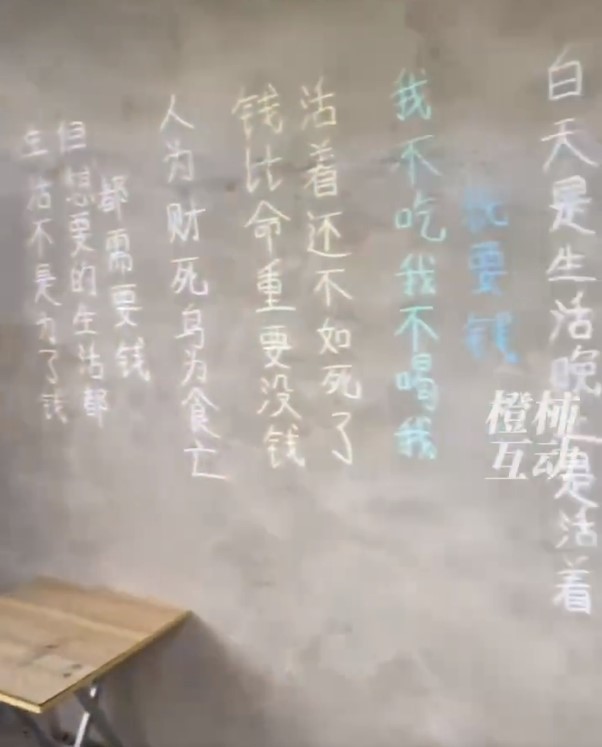 生活不是为了钱
但想要的生活都
都需要钱
人为财死鸟为食亡
钱比命重要没钱
活着还不如死了
我不吃我不喝我
就要钱
白天是生活晚上是活着
橙柿
互动